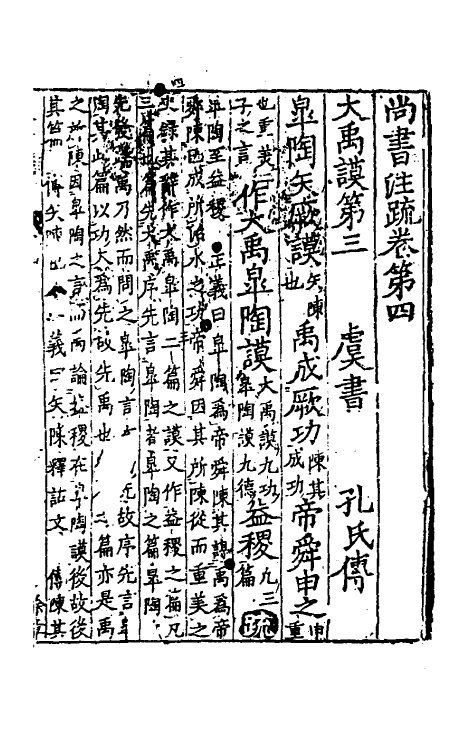 尚書注疏卷第四
大禹謨第三 虞書 孔氏傳
皐陶矢厥謨矢陳也禹成厥功陳其成功帝舜申之申重
也重美二子之言作大禹皐陶謨大禹謨九功皐陶謨九德益稷凡三篇疏
皐陶至益稷 正義曰皐陶為帝舜陳其謀禹為帝
舜陳已成所治水之功帝舜因其所陳從而重美之
史錄其辭作大禹皐陶二篇之謨又作益稷之篇凡
三篇也篇先大禹序先言皐陶者皐陶之篇皐陶
先發端禹乃然而問之皐陶言在先故序先言皐
陶其此篇以功大為先故先禹也 篇亦是禹
之所陳因皐陶之言而禹論益稷在皐陶謨後故後
其篇 傳矢陳也 義曰矢陳釋詁文 傳陳其